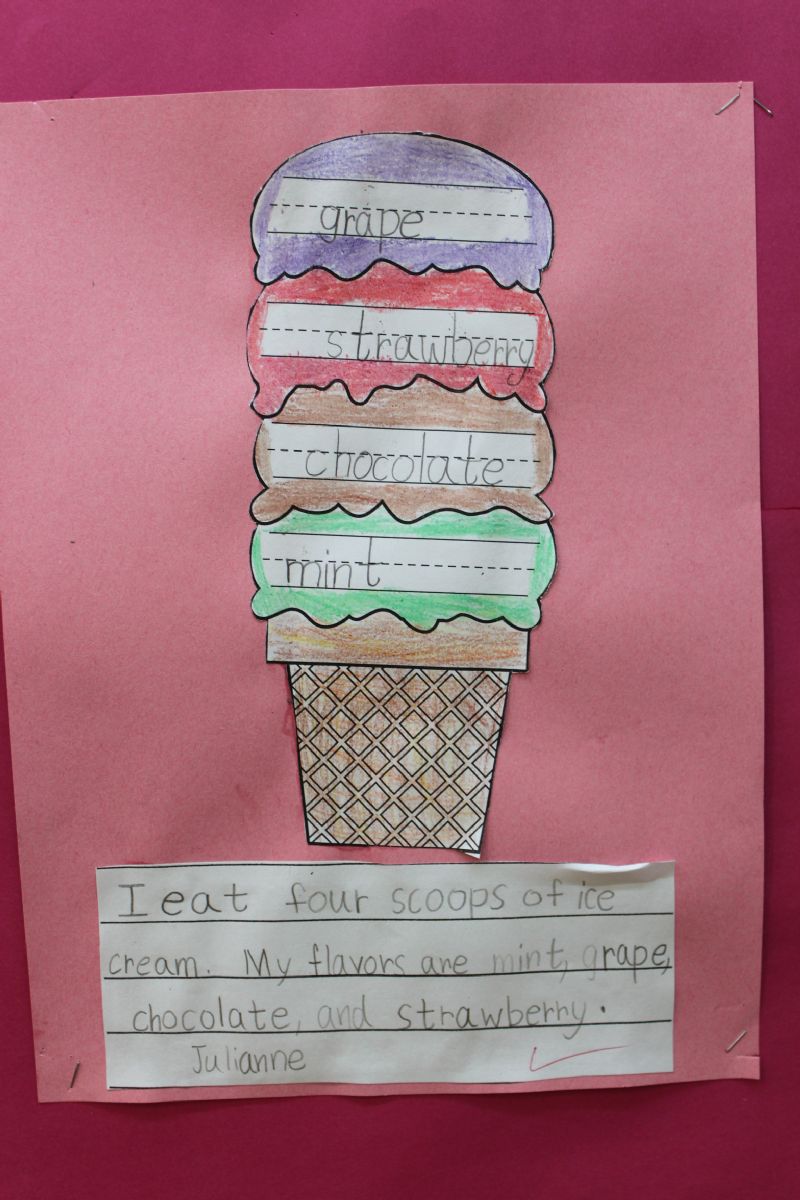 grape
strawberry
chocolate
mint
I eat four scoops of ice
cream. My flavors are mint, grape,
chocolate, and strawberry.
Julianne